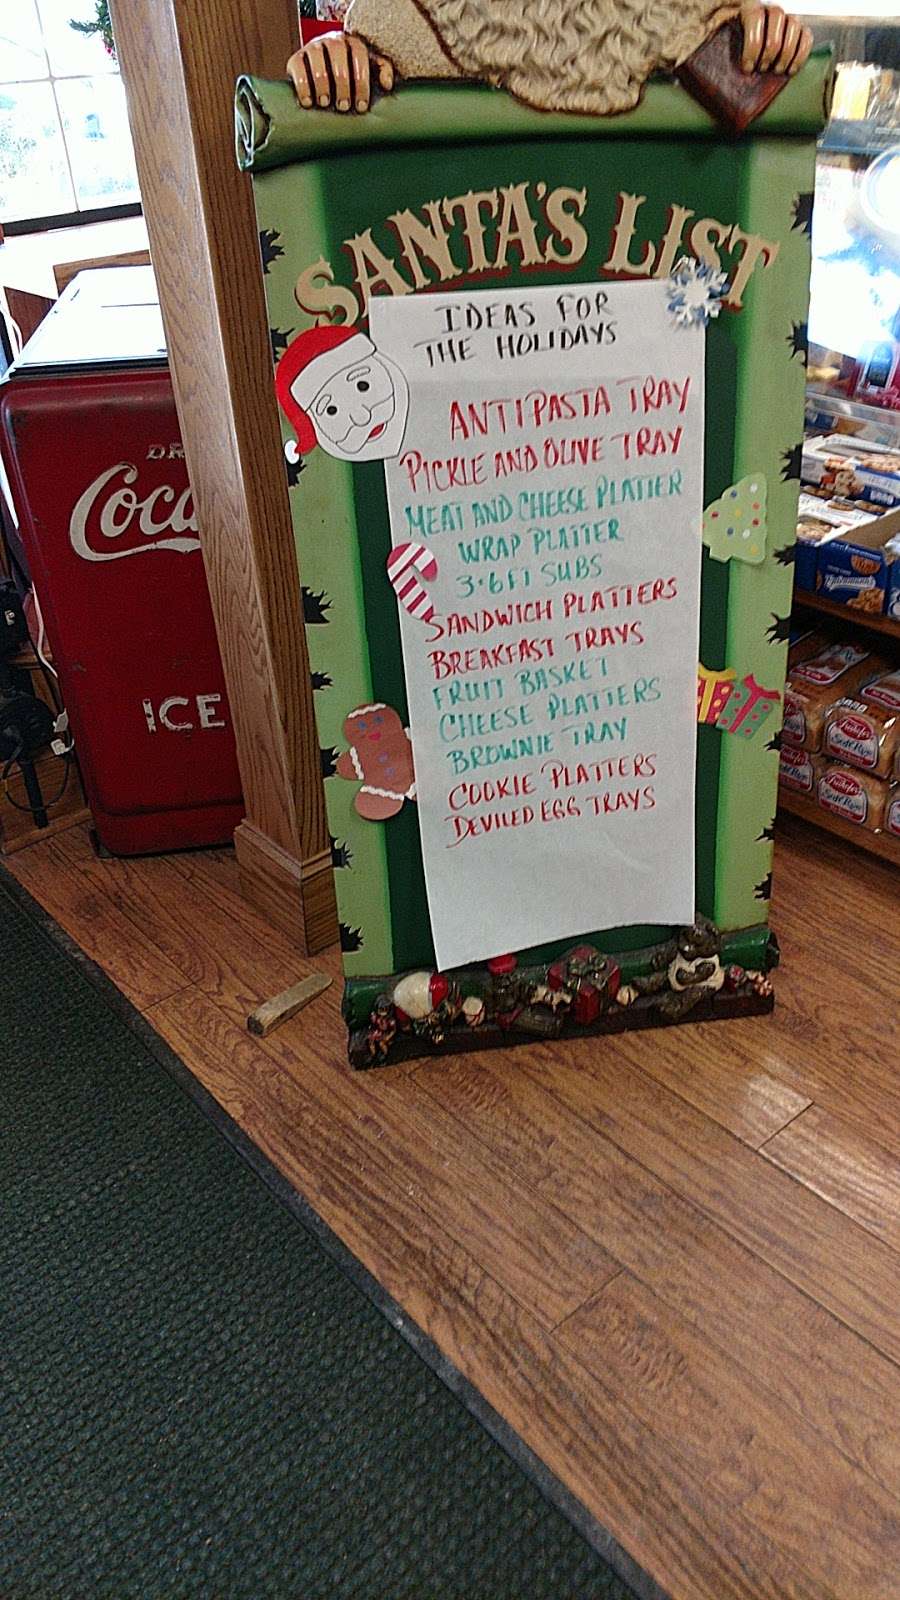 SANTA'S LIST
IDEAS FOR
THE HOLIDAYS
ANTIPASTA TRAY
PICKLE AND OLIVE TRAY
MEAT AND CHEESE PLATTER
WRAP PLATTER
3-6FT SUBS
SANDWICH PLATTERS
BREAKFAST TRAYS
FRUIT BASKET
CHEESE PLATTERS
BROWNIE TRAY
COOKIE PLATTERS
DEVILED EGG TRAYS
DR
Coca
ICE
Entenmann's
Freihofer's
Soft Rye